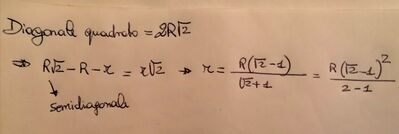 Diagonale quadrato = 2R√2
⇒ R√2 - R - r = r√2 → r = R(√2-1)/(√2+1) = R(√2-1)²/(2-1)
semidiagonale